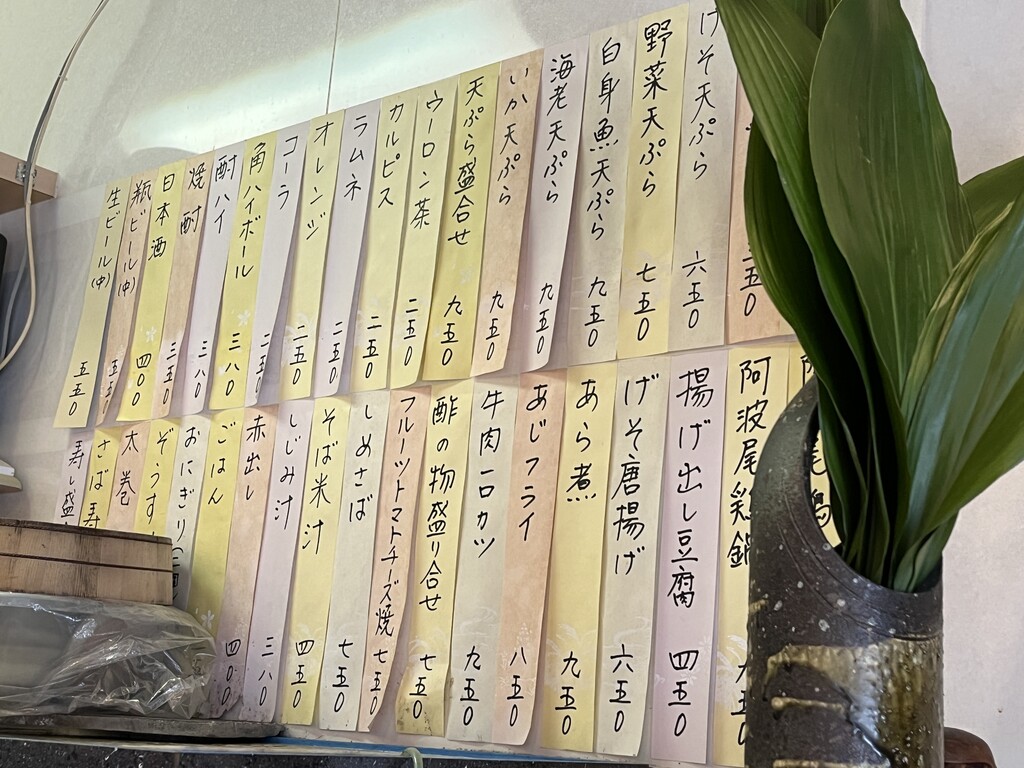 五0
げそ天ぷら 六五0
野菜天ぷら 七五0
白身魚天ぷら 九五0
海老天ぷら 九五0
いか天ぷら 九五0
天ぷら盛合せ 九五0
ウーロン茶 二五0
カルピス 二五0
ラムネ 二五0
オレンジ 二五0
コーラ 二五0
角ハイボール 三八0
酎ハイ 三八0
焼酎 三五0
日本酒 四00
瓶ビール(中) 五五0
生ビール(中) 五五0
阿波尾鶏鍋 五0
揚げ出し豆腐 四五0
げそ唐揚げ 六五0
あら煮 九五0
あじフライ 八五0
牛肉一口カツ 九五0
酢の物盛り合せ 七五0
フルーツトマトチーズ焼 七五0
しめさば 七五0
そば米汁 四五0
しじみ汁 三八0
赤出し 四00
ごはん
おにぎり
ぞうす
太巻
さば寿
寿し盛